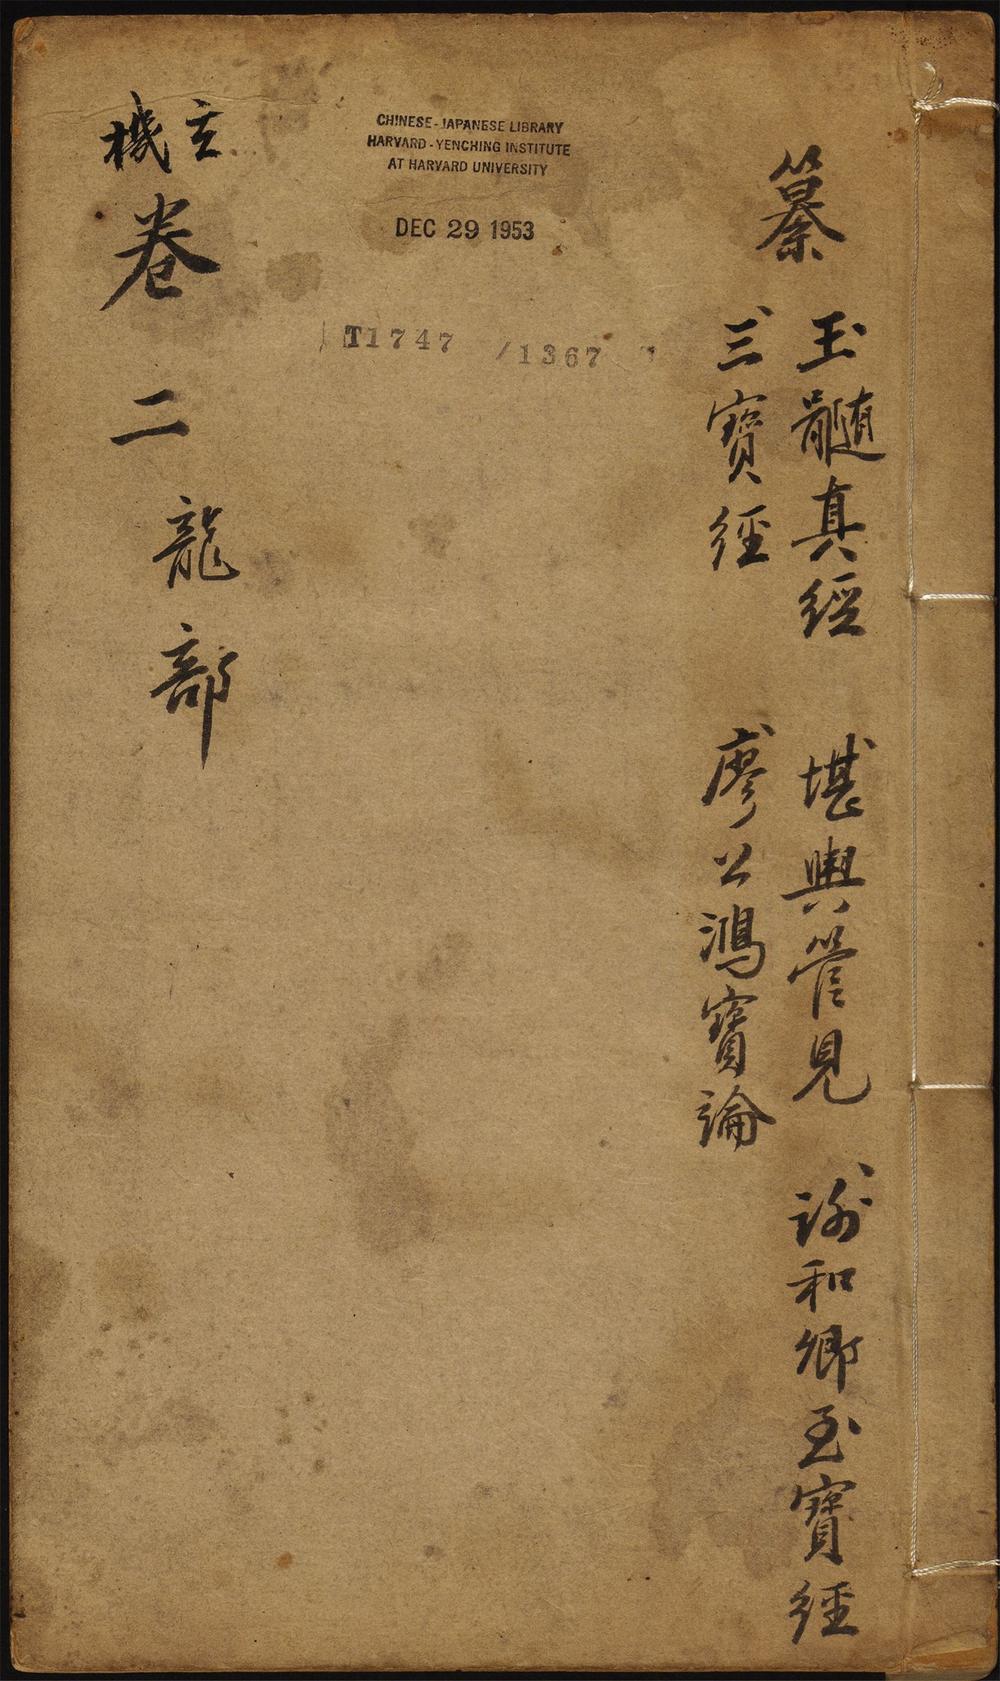 纂
玉髓真經 堪輿管見 謝和卿至寶經
三寶經 廖公鴻寶論
CHINESE-JAPANESE LIBRARY
HARVARD-YENCHING INSTITUTE
AT HARVARD UNIVERSITY
DEC 29 1953
T1747 /1367
玄機 卷二 龍部